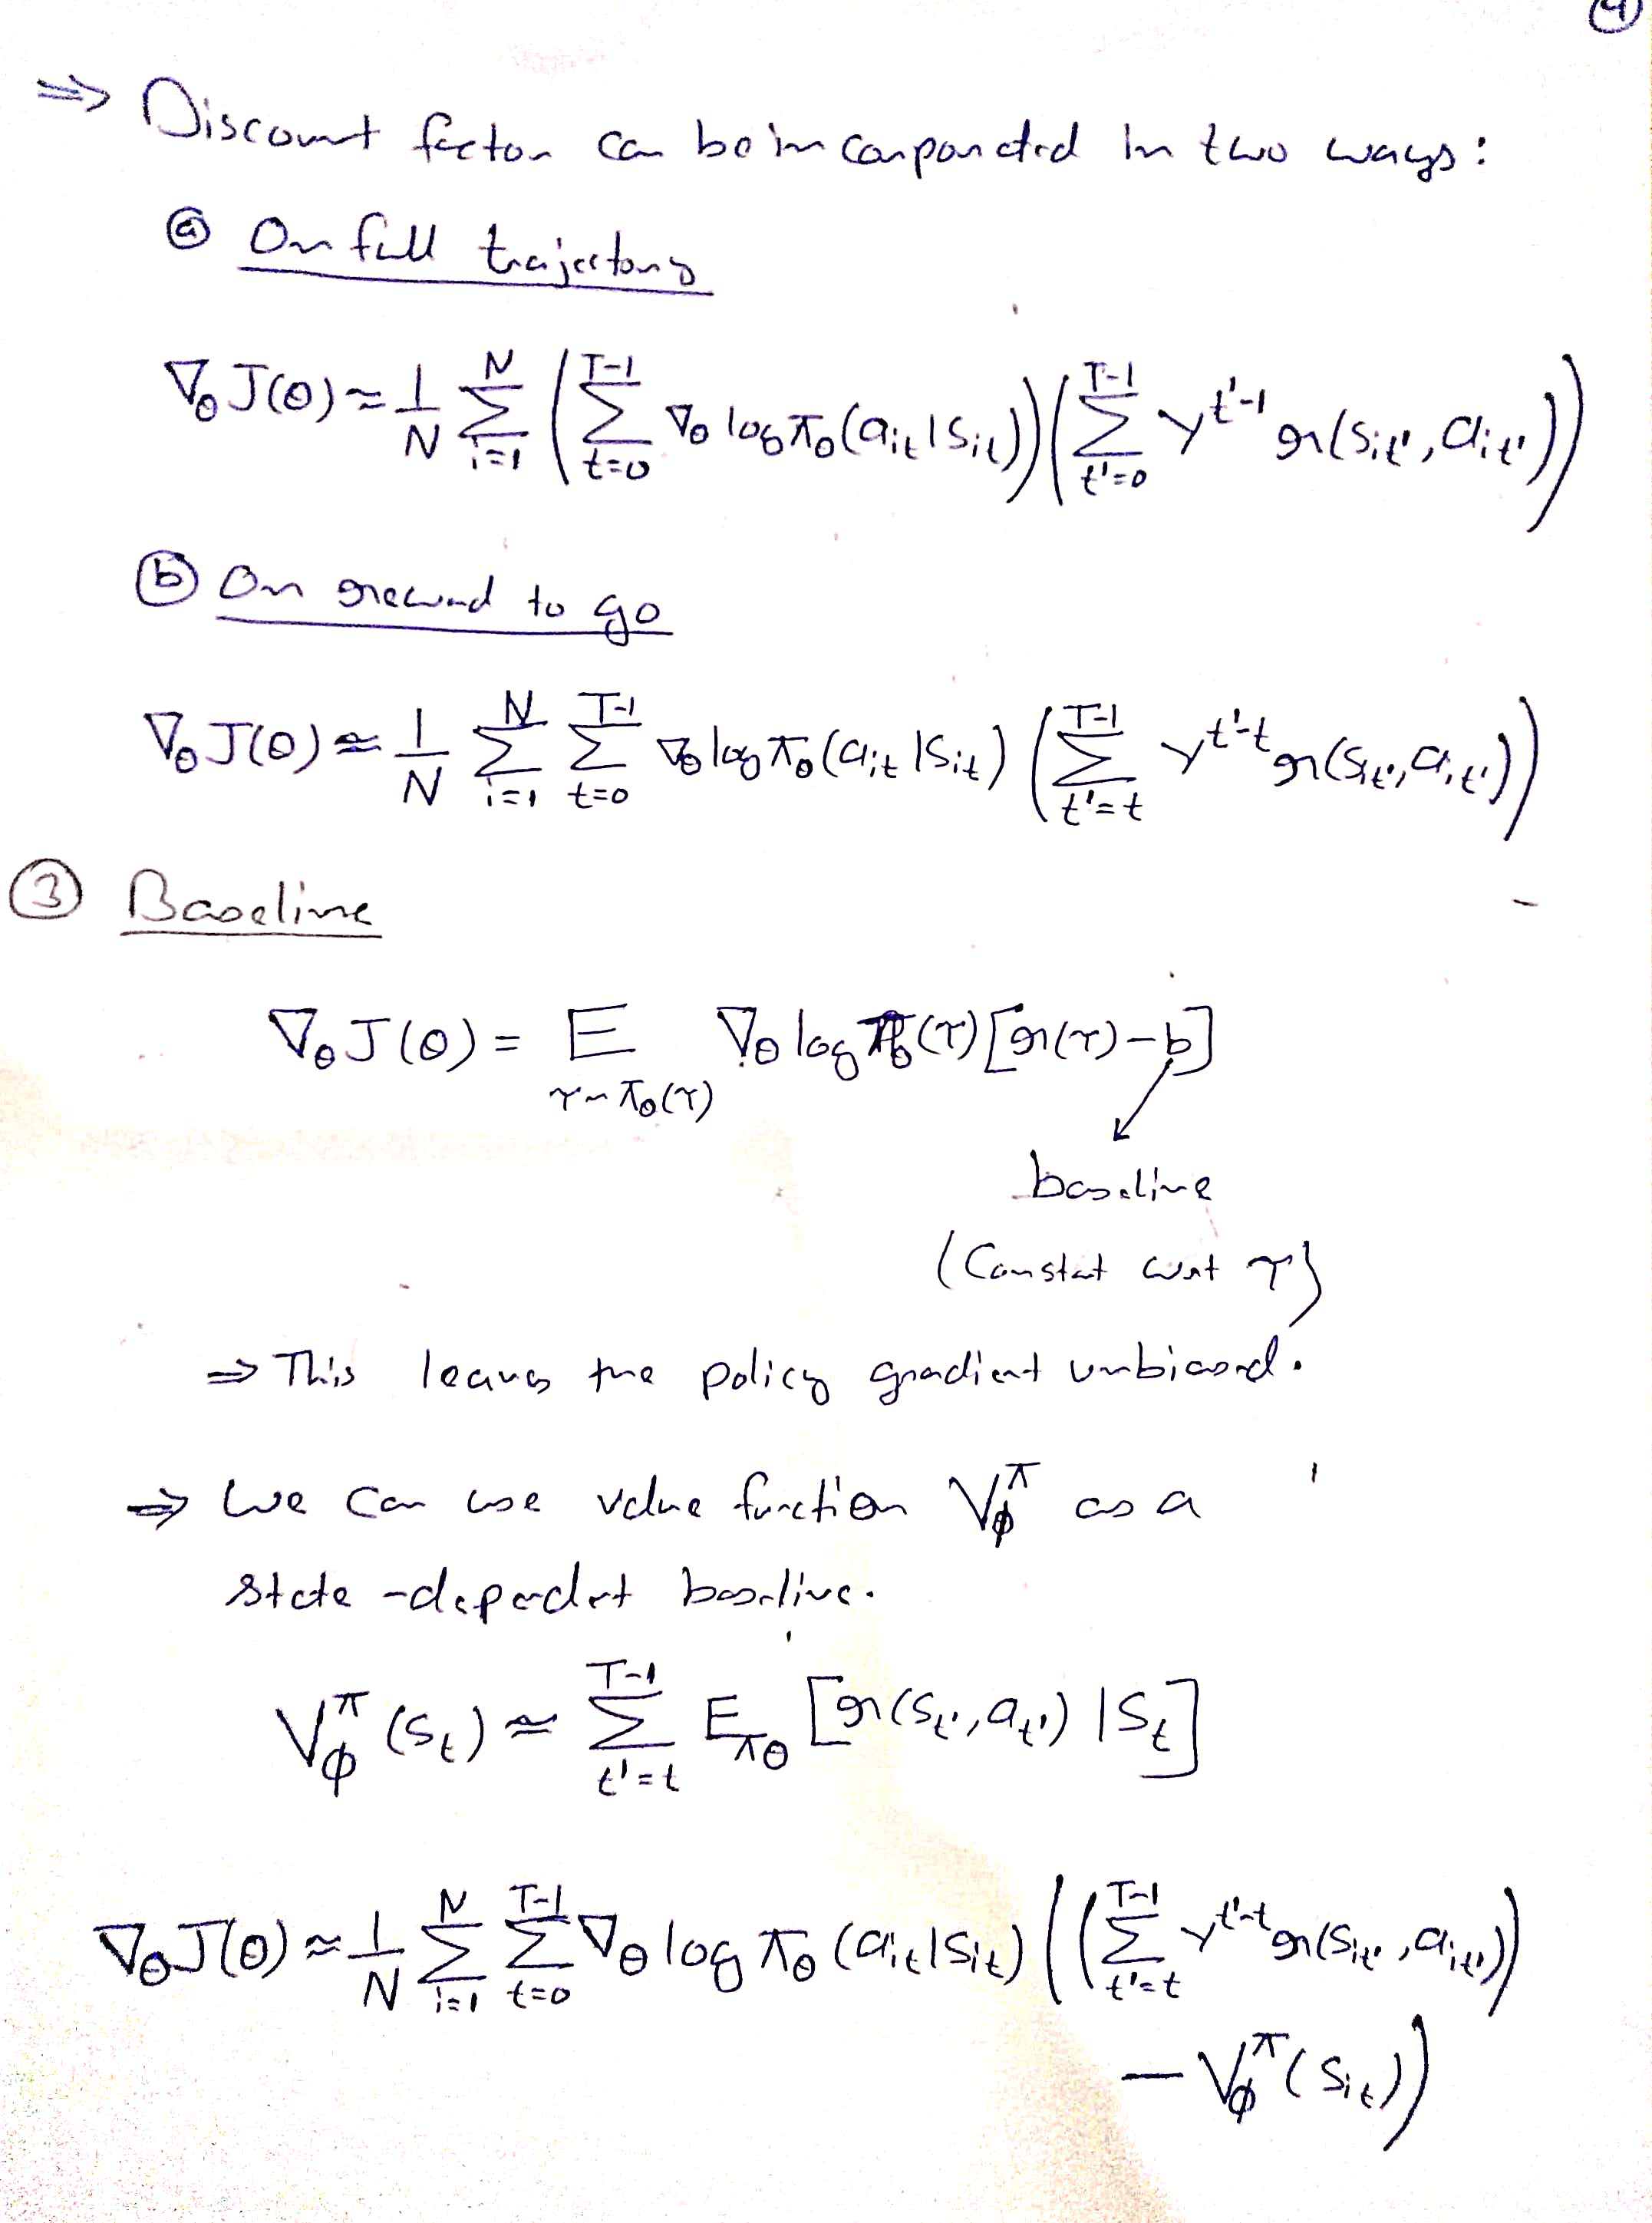 ④
⇒ Discount factor can be incorporated in two ways:
ⓐ On full trajectory
∇_θ J(θ) ≈ 1/N Σ_{i=1}^{N} (Σ_{t=0}^{T-1} ∇_θ log π_θ(a_{it}|s_{it})) (Σ_{t'=0}^{T-1} γ^{t'-1} r(s_{it'}, a_{it'}))
ⓑ On reward to go
∇_θ J(θ) ≈ 1/N Σ_{i=1}^{N} Σ_{t=0}^{T-1} ∇_θ log π_θ(a_{it}|s_{it}) (Σ_{t'=t}^{T-1} γ^{t'-t} r(s_{it'}, a_{it'}))
③ Baseline
∇_θ J(θ) = E_{τ∼π_θ(τ)} ∇_θ log π_θ(τ) [r(τ) − b]
baseline
(Constat wrt τ)
⇒ This leaves the policy gradient unbiased.
⇒ We can use value function V_φ^π as a
state-dependet baseline.
V_φ^π(s_t) ≈ Σ_{t'=t}^{T-1} E_{π_θ} [r(s_{t'}, a_{t'}) | s_t]
∇_θ J(θ) ≈ 1/N Σ_{i=1}^{N} Σ_{t=0}^{T-1} ∇_θ log π_θ(a_{it}|s_{it}) ((Σ_{t'=t}^{T-1} γ^{t'-t} r(s_{it'}, a_{it'}))
− V_φ^π(s_{it}))